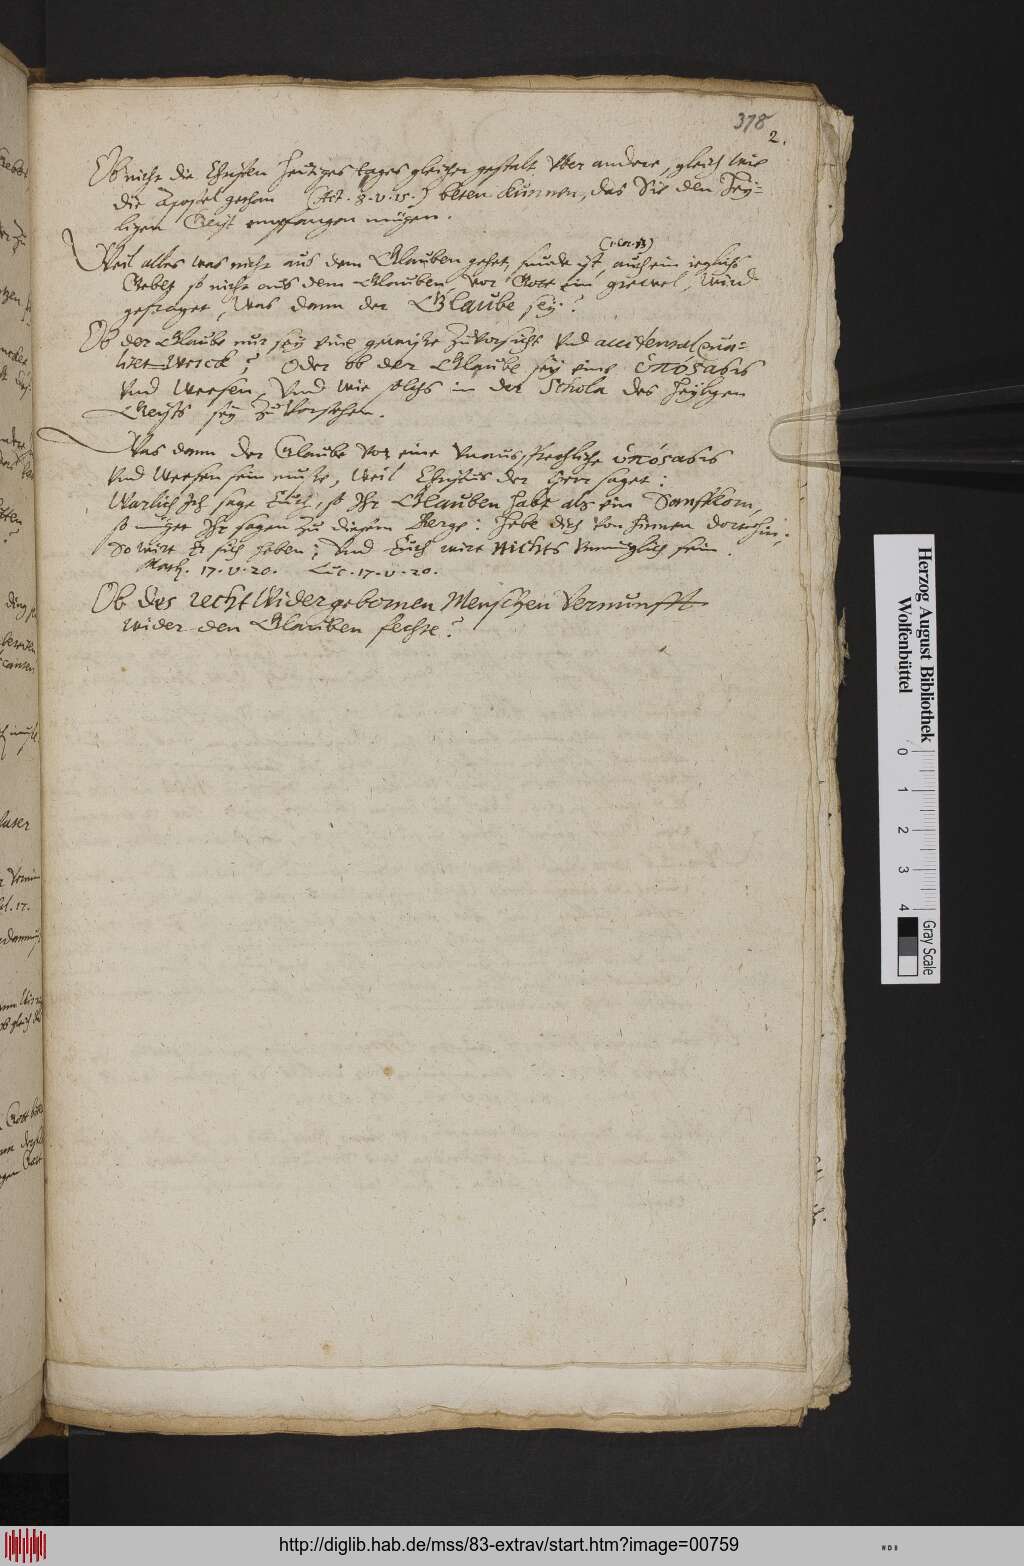 378
2.
Ob nicht die Christen heutiges tages gleicher gestalt vber andere, gleich wie
die Apostel gethan (Act. 8. v. 15.) beten kunnen, das Sie den Hey-
ligen Geist empfangen mügen.
Weil alles was nicht aus dem Glauben gehet, sunde ist, auch ein ieglichs
Gebet so nicht aus dem Glauben vor Gott ein grewel, wird
gefraget, Was dann der Glaube sey?
Ob der Glaube nur sey eine gewisse Zuversicht vnd
Werck? Oder ob der Glaube sey eine ὑπόςασις
vnd Weesen, vnd wie solchs in der Schola des heyligen
Geists sey zu verstehen.
Was dann der Glaube vor eine vnaussprechliche ὑπόςασις
vnd Weesen sein muste, weil Christus der Herr saget:
Warlich Ich sage Euch, so Ihr Glauben habt als ein Senffkorn,
so müget Ihr sagen zu diesem Berge: Hebe dich von hinnen dorthin,
So wirt Er sich heben; Vnd Euch wirt nichts vnmüglich sein.
Math. 17. v. 20. Luc. 17. v. 20.
Ob des recht Widergebornen Menschen Vernunfft
wider den Glauben fechte?
Herzog August Bibliothek
Wolfenbüttel
0 1 2 3 4
Gray Scale
http://diglib.hab.de/mss/83-extrav/start.htm?image=00759